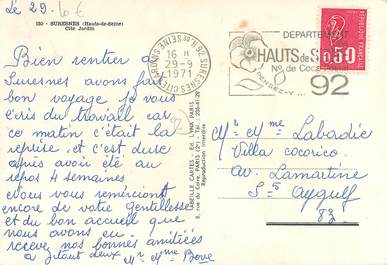 Le 29.
16 €
130 - SURESNES (Hauts-de-Seine)
Cité Jardin
Bien rentrer
Suresnes avons fait
bon voyage. Je vous
écris du travail car
ce matin c'était la
reprise, et c'est dur
après avoir été au
repos 4 semaines
Nous vous remercions
encore de votre gentillesse
et du bon accueil que
nous avons eu.
recever nos bonnes amitiées
à vous deux Mr Mme Bove
ABEILLE CARTES - Ed. LYNA PARIS
8, rue du Caire, PARIS (2e) - Tél. 236-41-28
Reproduction interdite
92
SURESNES CITE JARDINS
HTS DE SEINE
16 H
29-9
1971
DEPARTEMENT
HAUTS de S
No de Code
PENSEZ-Y ...
92
REPUBLIQUE FRANÇAISE
0,50
POSTES
Mr Mme Labadie
Villa cocorico
av. Lamartine
Ste Aygulf
83